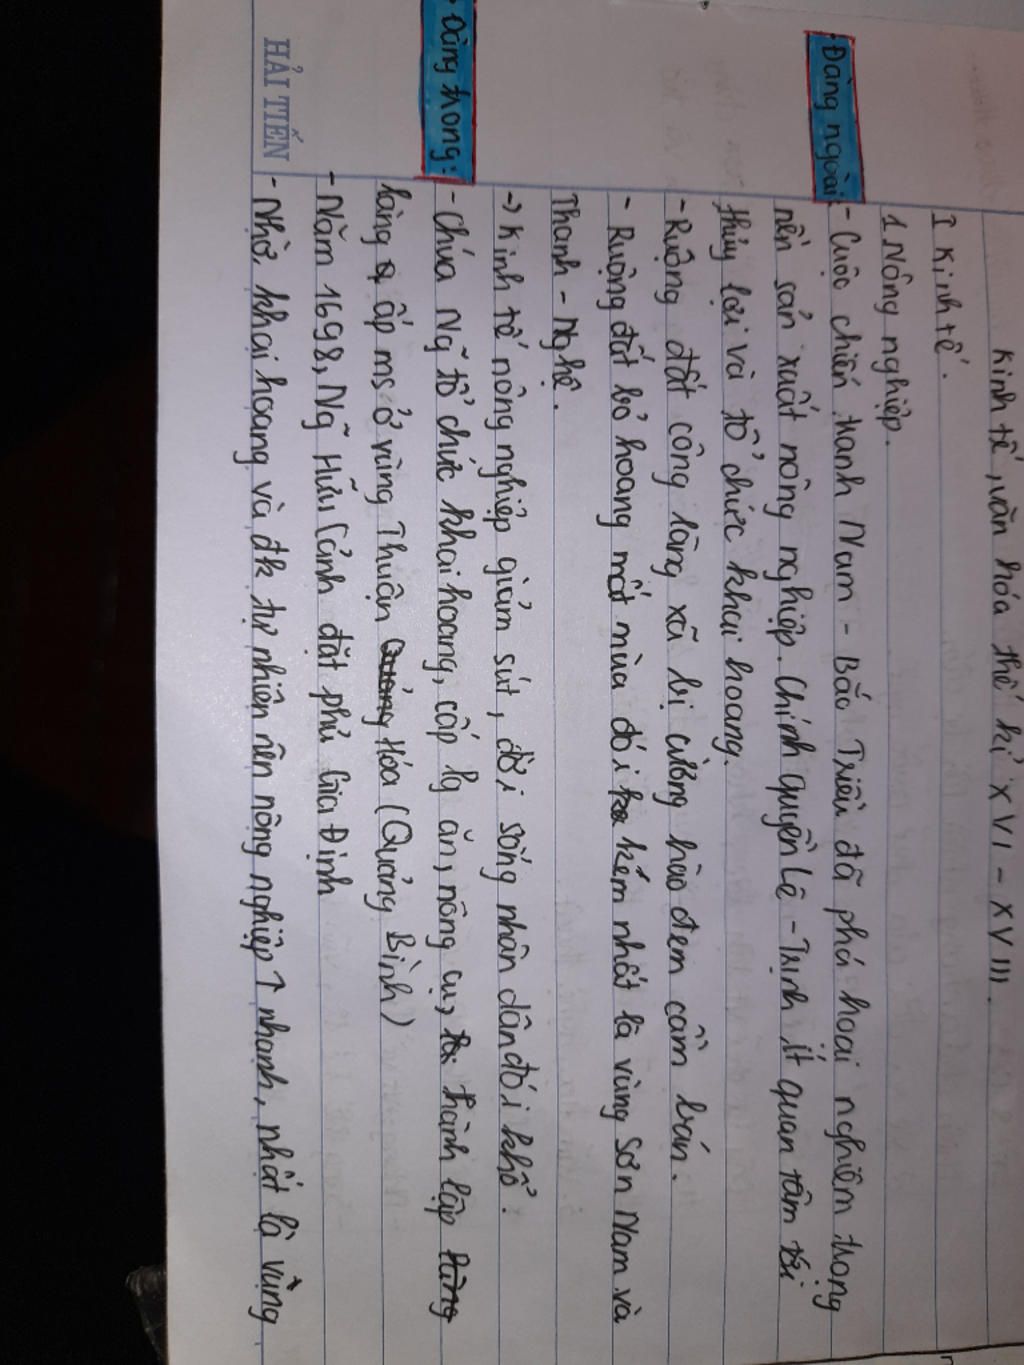 Kinh tế, văn hóa thế kỉ XVI - XVIII.
I Kinh tế.
1 Nông nghiệp.
Đàng ngoài
- Cuộc chiến tranh Nam - Bắc Triều đã phá hoại nghiêm trọng
nền sản xuất nông nghiệp. Chính quyền Lê - Trịnh ít quan tâm
thủy lợi và tổ chức khai hoang.
- Ruộng đất công làng xã bị cường hào đem cầm bán.
- Ruộng đất bỏ hoang mất mùa đói kém nhất là vùng Sơn Nam và
Thanh - Nghệ.
-> Kinh tế nông nghiệp giảm sút, đời sống nhân dân đói khổ.
Đàng trong:
- Chúa Ng~ tổ chức khai hoang, cấp lg ăn, nông cụ, thành lập
làng ấp ms ở vùng Thuận Hóa (Quảng Bình)
- Năm 1698, Ng~ Hữu Cảnh đặt phủ Gia Định
- Nhờ khai hoang và đk tự nhiên nên nông nghiệp ↑ nhanh, nhất là vùng
HẢI TIẾN